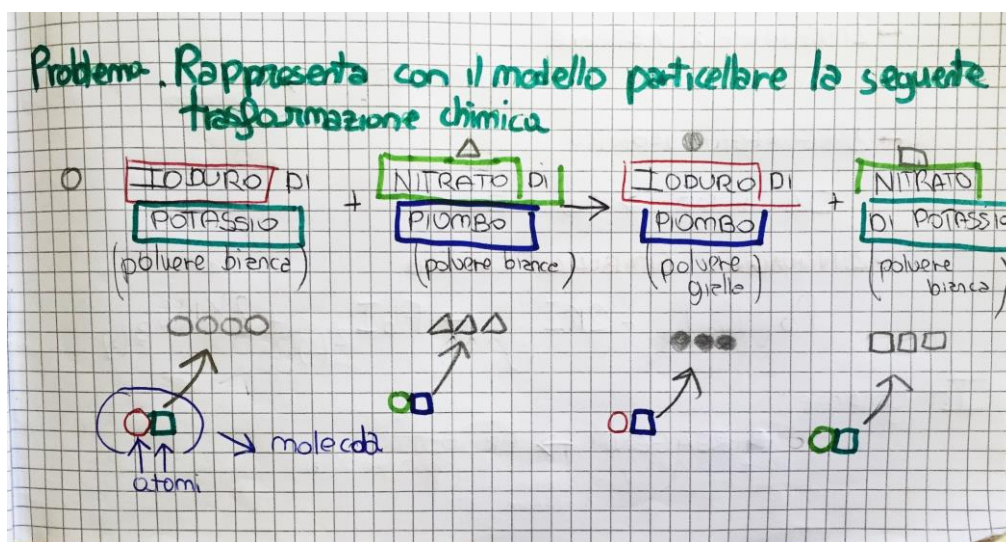 Problema. Rappresenta con il modello particellare la seguente
trasformazione chimica
IODURO DI
POTASSIO
(polvere bianca)
+
NITRATO DI
PIOMBO
(polvere bianca)
→
IODURO DI
PIOMBO
(polvere
gialla)
+
NITRATO
DI POTASSIO
(polvere
bianca)
molecola
atomi